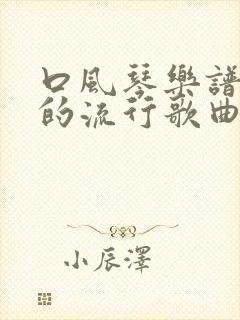 口風琴樂譜
的流行歌曲
小辰澤